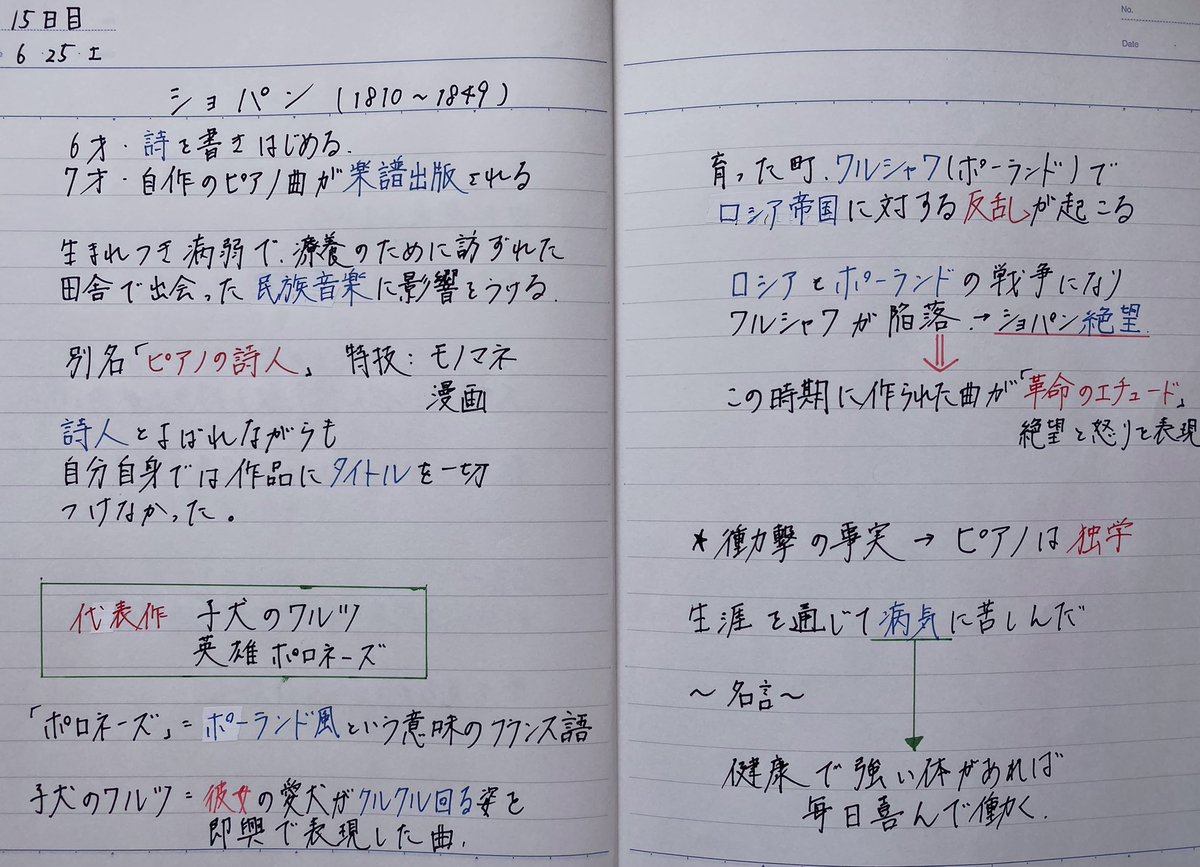 15日目
6・25・土
ショパン (1810～1849)
6才・詩を書きはじめる.
7才・自作のピアノ曲が楽譜出版される
生まれつき病弱で、療養のために訪ずれた
田舎で出会った民族音楽に影響をうける.
別名「ピアノの詩人」 特技: モノマネ
漫画
詩人とよばれながらも
自分自身では作品にタイトルを一切
つけなかった。
代表作 子犬のワルツ
英雄ポロネーズ
「ポロネーズ」=ポーランド風という意味のフランス語
子犬のワルツ=彼女の愛犬がクルクル回る姿を
即興で表現した曲.
No.
Date
育った町.ワルシャワ(ポーランド)で
ロシア帝国に対する反乱が起こる
ロシアとポーランドの戦争になり
ワルシャワが陥落.→ショパン絶望.
⇓
この時期に作られた曲が「革命のエチュード」
絶望と怒りを表現
*衝撃の事実→ピアノは独学
生涯を通じて病気に苦しんだ
～名言～
健康で強い体があれば
毎日喜んで働く.